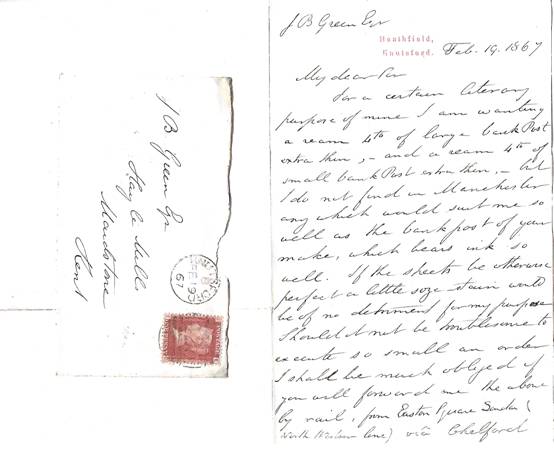 J B Green Esq
Heathfield,
Knutsford.
Feb. 19. 1867
My dear Sir
For a certain literary
purpose of mine I am wanting
a ream 4to of large bank Post
extra thin, - and a ream 4to of
small bank Post extra thin, - but
I do not find in Manchester
any which would suit me so
well as the bank post of your
make, which bears ink so
well. If the sheets be otherwise
perfect a little size stain would
be of no detriment for my purpose
Should it not be troublesome to
execute so small an order
I shall be much obliged if
you will forward me the above
by rail, from Euston Square Station (
North Western line) via Chelford
J B Green Esq
Hayle Mill
Maidstone
Kent
FE 19
67